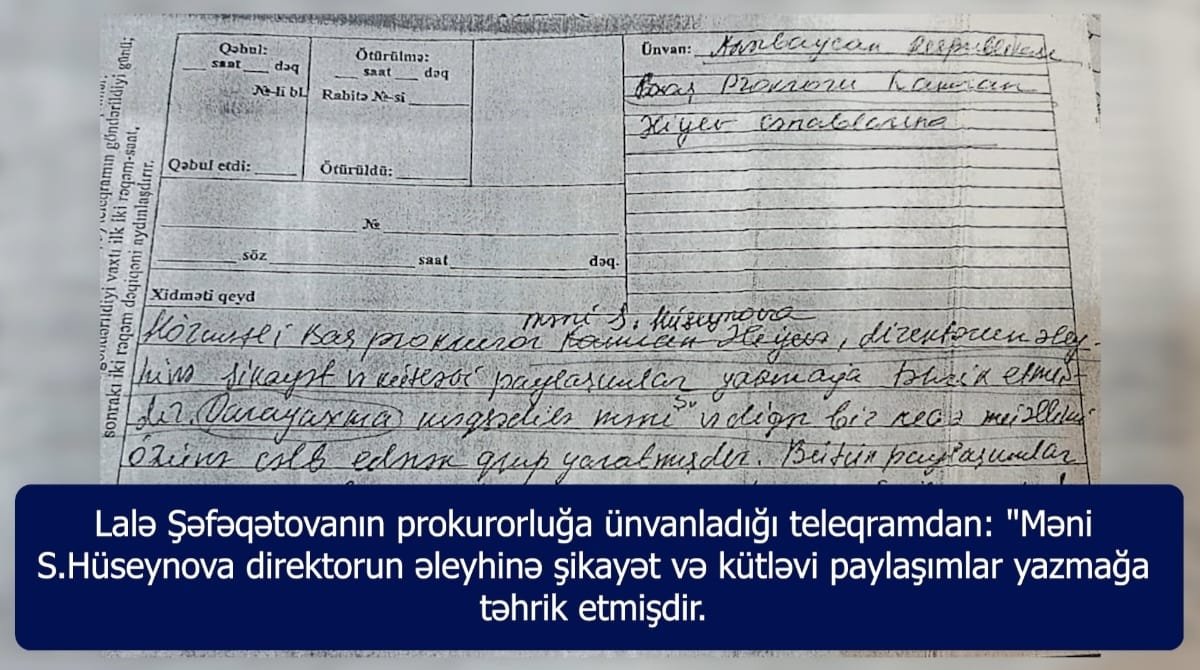 Qəbul:
___ saat ___ dəq
№-li bl.
Qəbul etdi: _____
Ötürülmə:
___ saat ___ dəq
Rabitə №-si ______
Ötürüldü: ______
№
söz saat dəq.
Xidməti qeyd
Ünvan: Azərbaycan Respublikası
Baş Prokroru Kamran
Əliyev cənablarına
sonrakı iki rəqəm dəqiqəni aydınlaşdırır.
teleqramın göndərildiyi vaxtı ilk iki rəqəm-saat,
göndərildiyi günü;
məni S. Hüseynova
Hörmətli Baş prokuror Kamran Əliyev, direktorun əley-
hinə şikayət və kütləvi paylaşımlar yazmağa təhrik etmiş-
dir. Qarayaxma məqsədilə məni və digər bir neçə müəllimi
özünə cəlb edərək qrup yaratmışdır. Bütün paylaşımlar
Lalə Şəfəqətovanın prokurorluğa ünvanladığı teleqramdan: "Məni
S.Hüseynova direktorun əleyhinə şikayət və kütləvi paylaşımlar yazmağa
təhrik etmişdir.